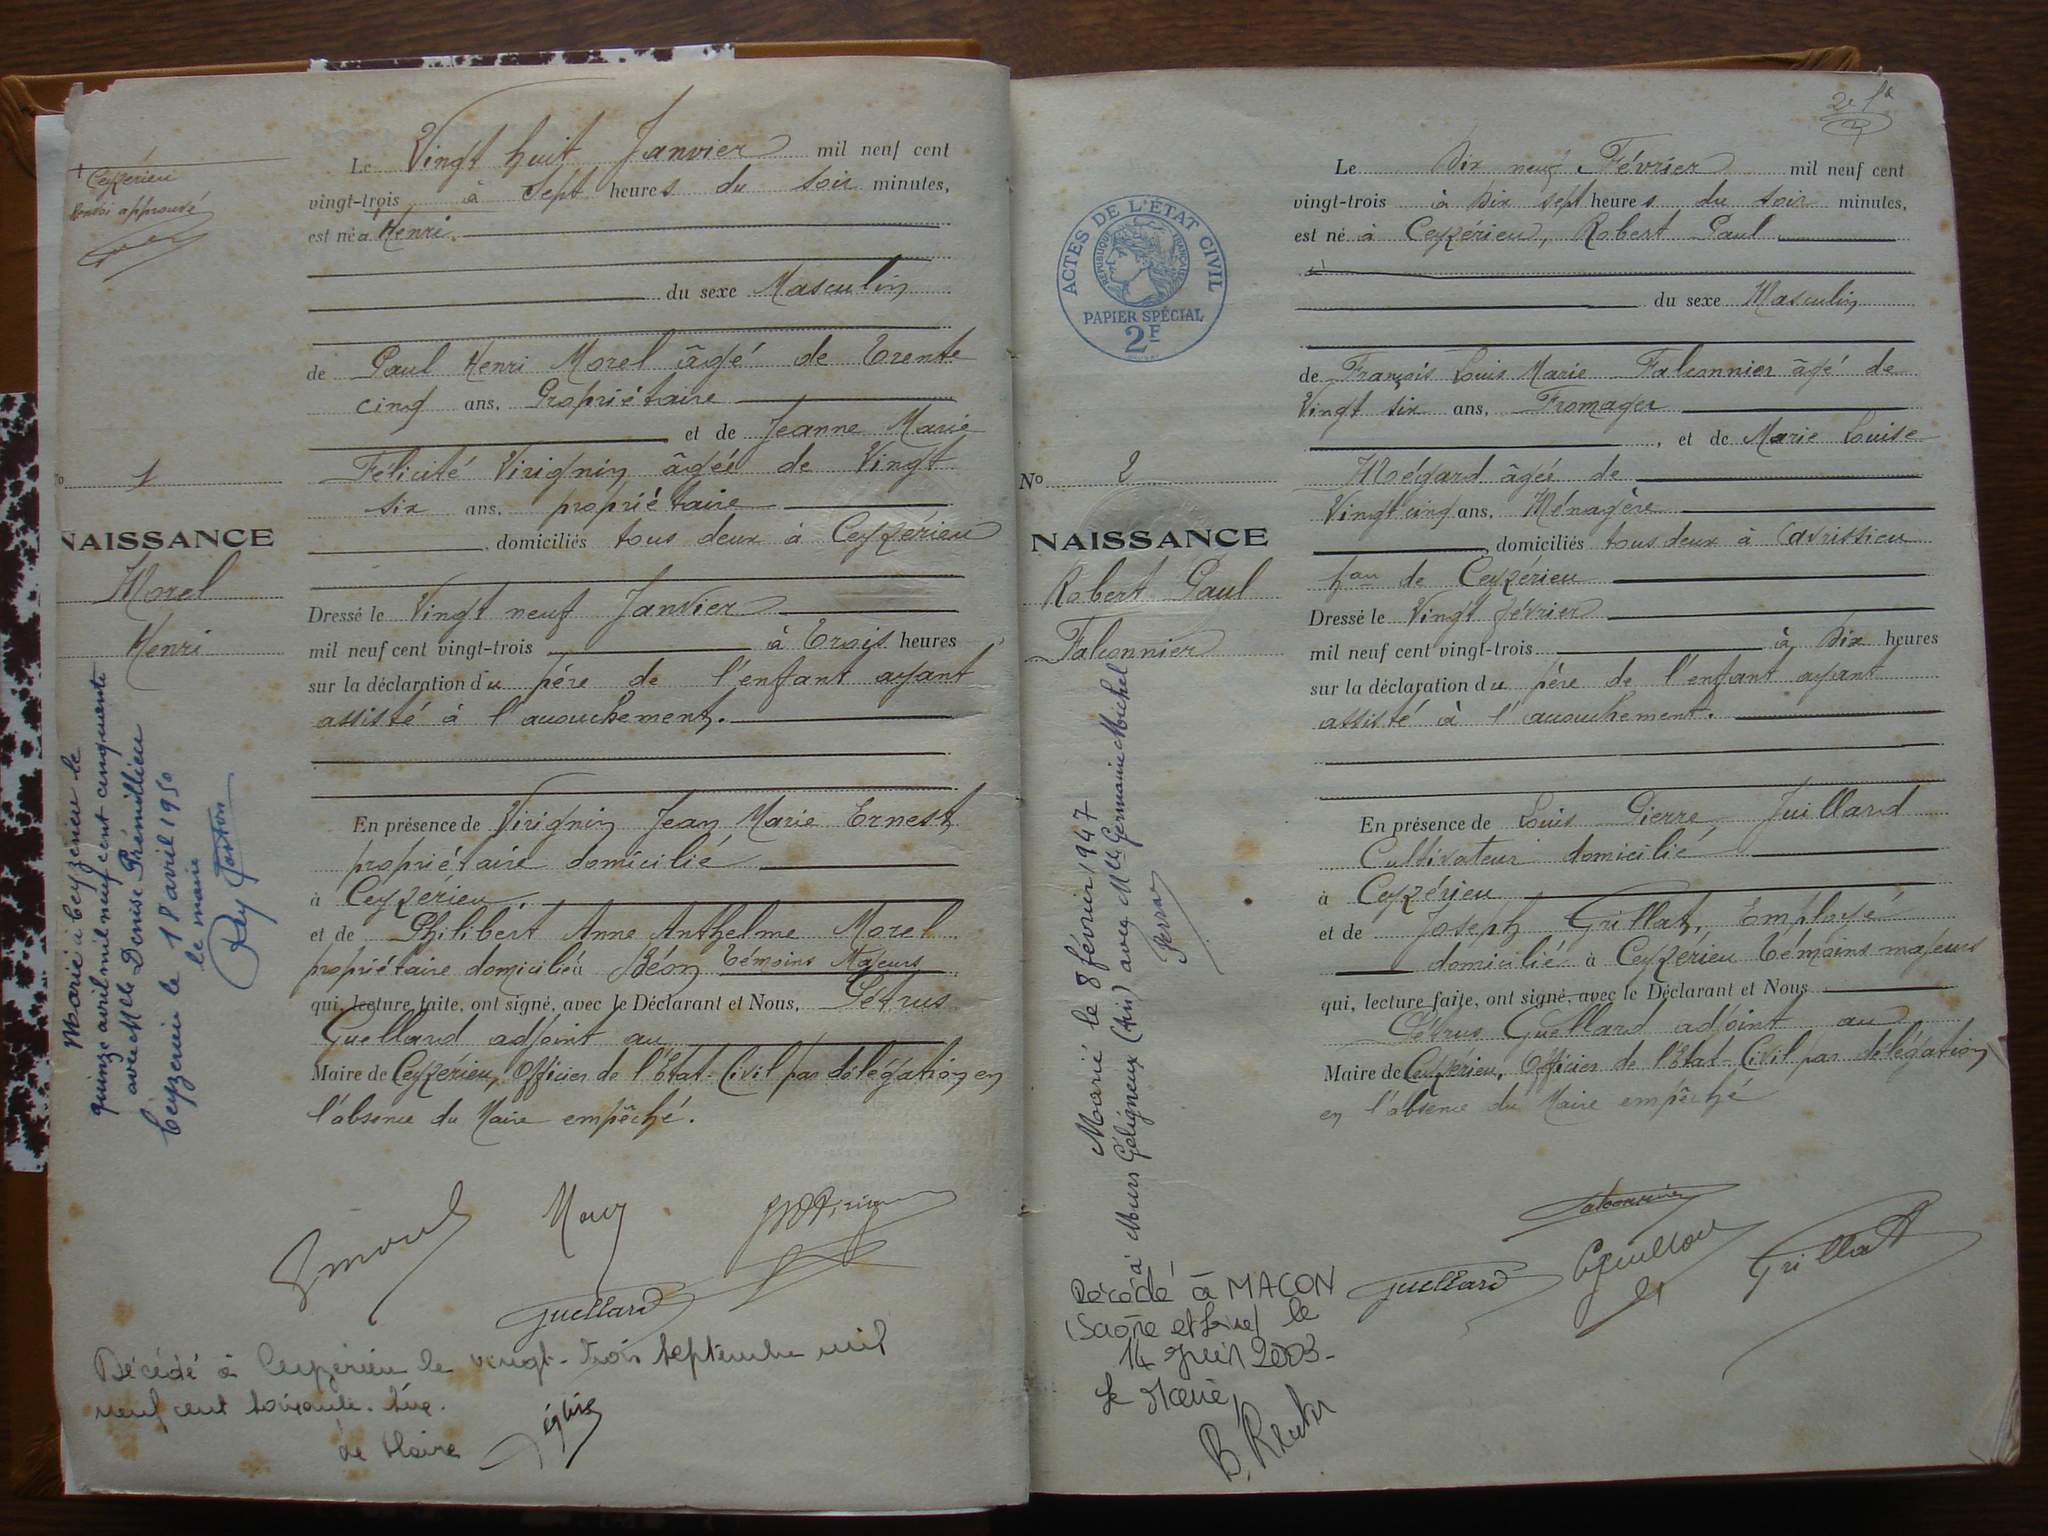 + Ceyzérieu
Renvoi approuvé
Le Vingt huit Janvier mil neuf cent
vingt-trois à Sept heures du soir minutes,
est né a Henri.
du sexe Masculin
de Paul Henri Morel âgé de Trente
cinq ans, Propriétaire
et de Jeanne Marie
Félicité Virignin âgée de Vingt
six ans, propriétaire
domiciliés tous deux à Ceyzérieu
Dressé le Vingt neuf Janvier
mil neuf cent vingt-trois à Trois heures
sur la déclaration du père de l'enfant ayant
assisté à l'acouchement.
En présence de Virignin Jean Marie Ernest
propriétaire domicilié
à Ceyzérieu.
et de Philibert Anne Anthelme Morel
propriétaire domicilié à Béon témoins Majeurs
qui, lecture faite, ont signé, avec le Déclarant et Nous, Pétrus
Guellard adjoint au
Maire de Ceyzérieu, Officier de l'Etat-Civil par délégation en
l'absence du Maire empêché.
No 1
NAISSANCE
Morel
Henri
Marié à Ceyzérieu le
quinze avril mil neuf cent cinquante
avec Mlle Denise Prémillieu
Ceyzérieu le 18 avril 1950
le maire
Guellard
Décédé à Ceyzérieu le vingt-trois septembre mil
neuf cent soixante-
Le Maire
2e f
ACTES DE L'ÉTAT CIVIL
RÉPUBLIQUE FRANÇAISE
PAPIER SPÉCIAL
2F
Le Dix neuf Février mil neuf cent
vingt-trois à Dix sept heures du soir minutes,
est né à Ceyzérieu, Robert Paul
du sexe Masculin
de François Louis Marie Falconnier âgé de
Vingt six ans, Fromager
, et de Marie Louise
Mégard âgée de
Vingt cinq ans, Ménagère
domiciliés tous deux à Avrissieu
hau de Ceyzérieu
Dressé le Vingt février
mil neuf cent vingt-trois à Dix heures
sur la déclaration du père de l'enfant ayant
assisté à l'acouchement.
En présence de Louis Pierre Juillard
Cultivateur domicilié
à Ceyzérieu
et de Joseph Grillat, Employé
domicilié à Ceyzérieu témoins majeurs
qui, lecture faite, ont signé, avec le Déclarant et Nous
Pétrus Guellard adjoint au
Maire de Ceyzérieu, Officier de l'Etat-Civil par délégation
en l'absence du Maire empêché
No 2
NAISSANCE
Robert Paul
Falconnier
Marié le 8 février 1947
à Murs Gélignieux (Ain) avec Mlle Germaine Michel
Guellard
Grillat
Décédé à MACON
(Saône et Loire) le
14 juin 2003-
Le Maire,